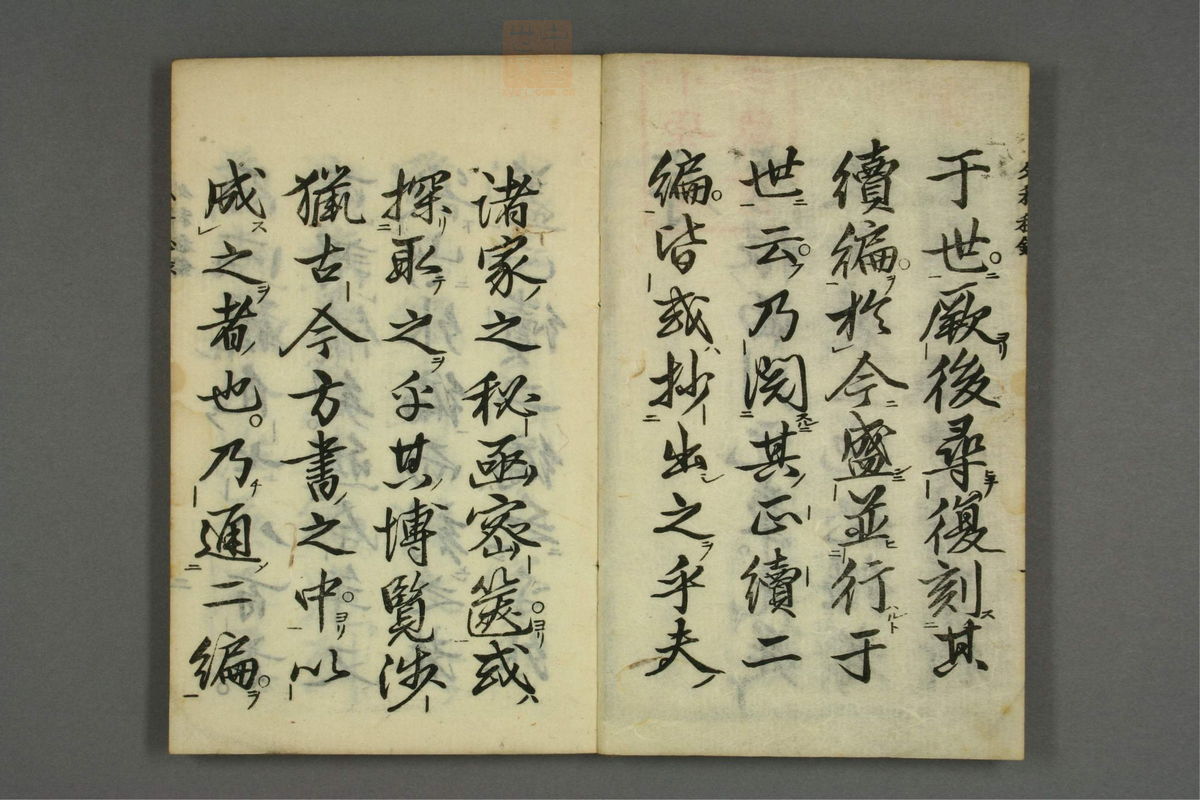 于世厥後尋復刻其
續編於今盛並行于
世云乃閲其正續二
編皆或抄出之乎夫
諸家之秘函密篋或
探取之乎其博覽渉
獵古今方書之中以
成之者也乃通二編